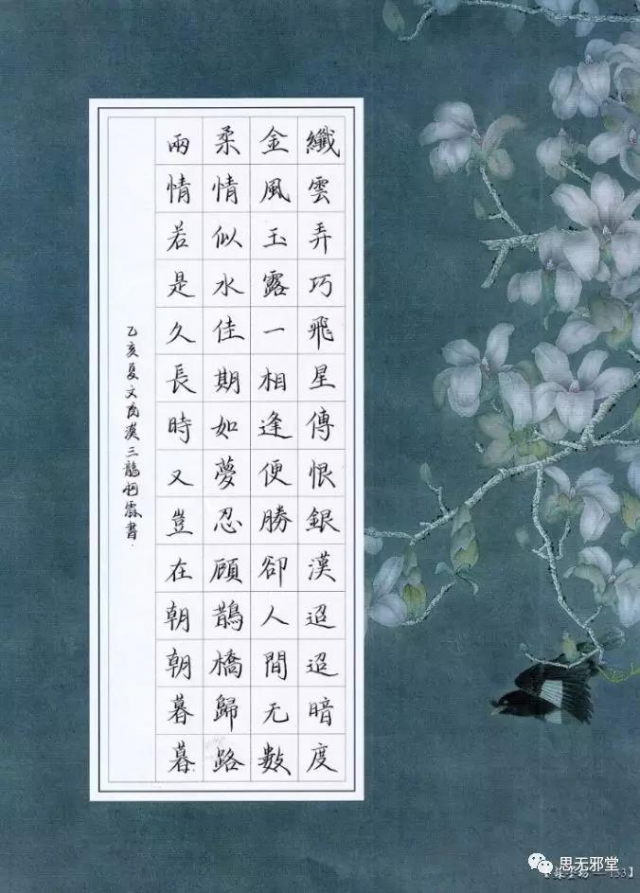 纖雲弄巧飛星傳恨銀漢迢迢暗度
金風玉露一相逢便勝卻人間无數
柔情似水佳期如夢忍顧鵲橋歸路
兩情若是久長時又豈在朝朝暮暮
乙亥夏文
三
書
思无邪堂
153】